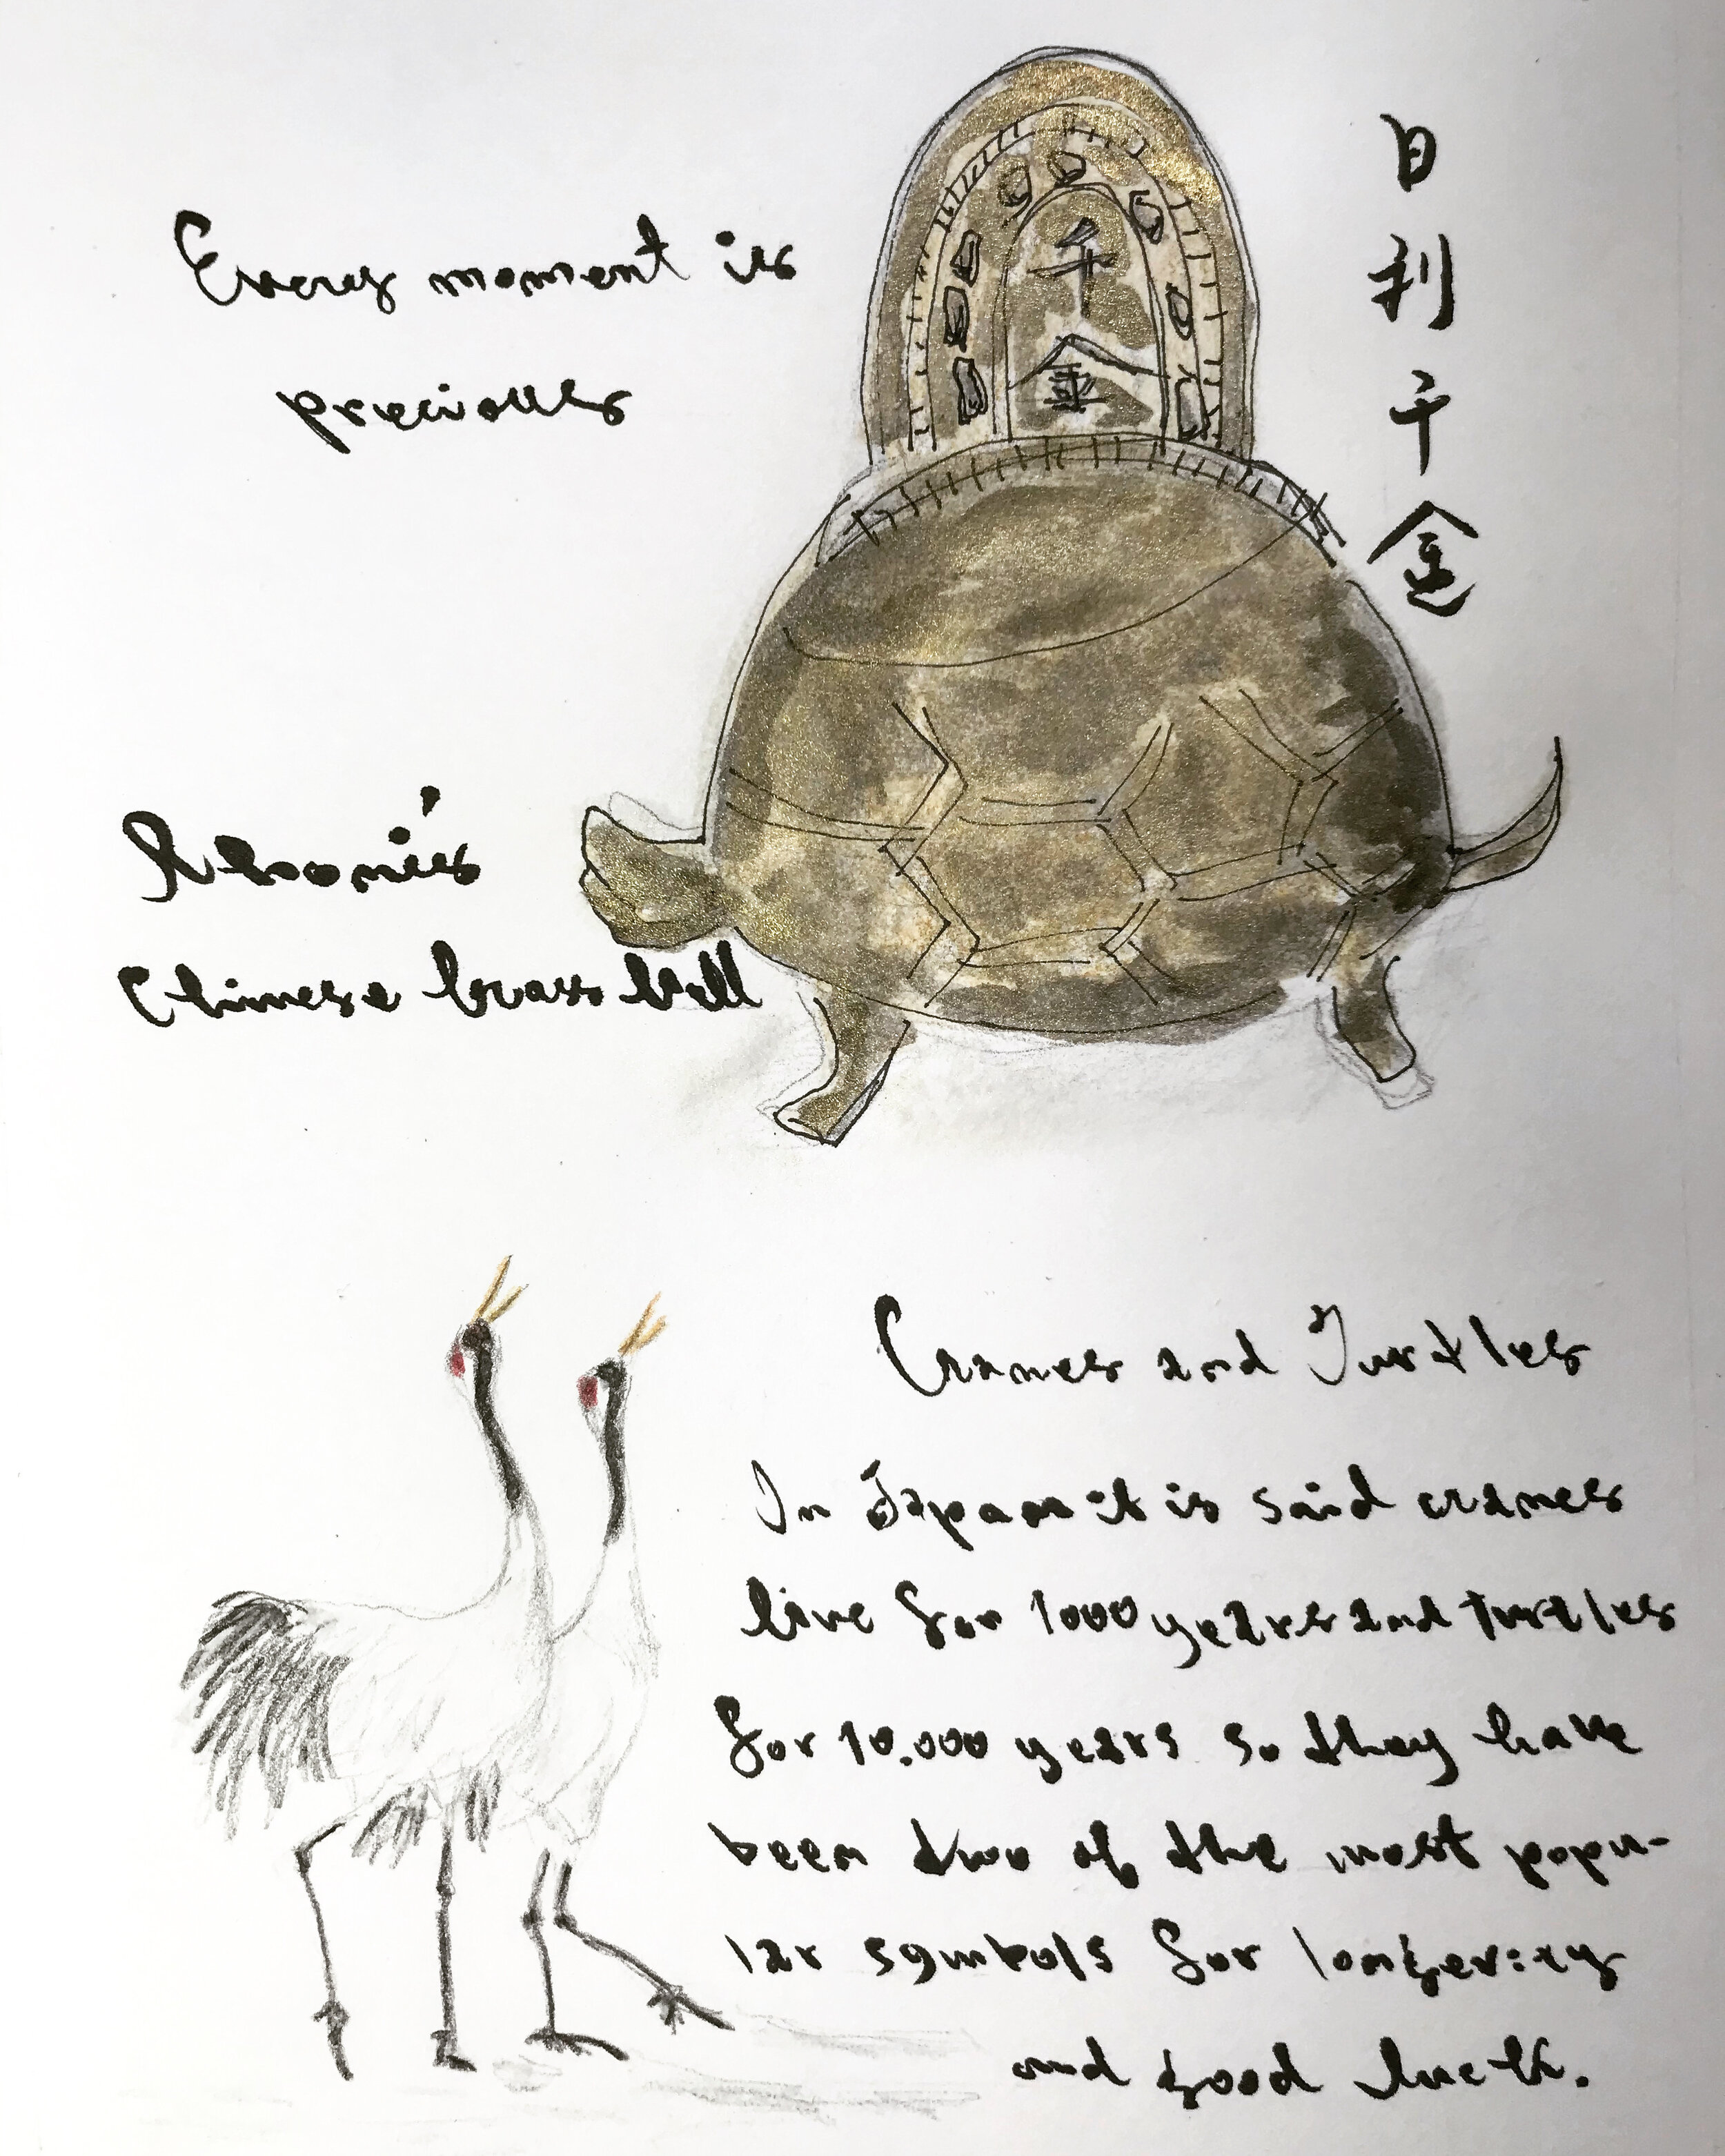 Every moment is
precious
千
金
日
利
千
金
Rhonie's
Chinese brass bell
Cranes and Turtles
In Japan it is said cranes
live for 1000 years and turtles
for 10.000 years so they have
been two of the most popu-
lar symbols for longevity
and good luck.